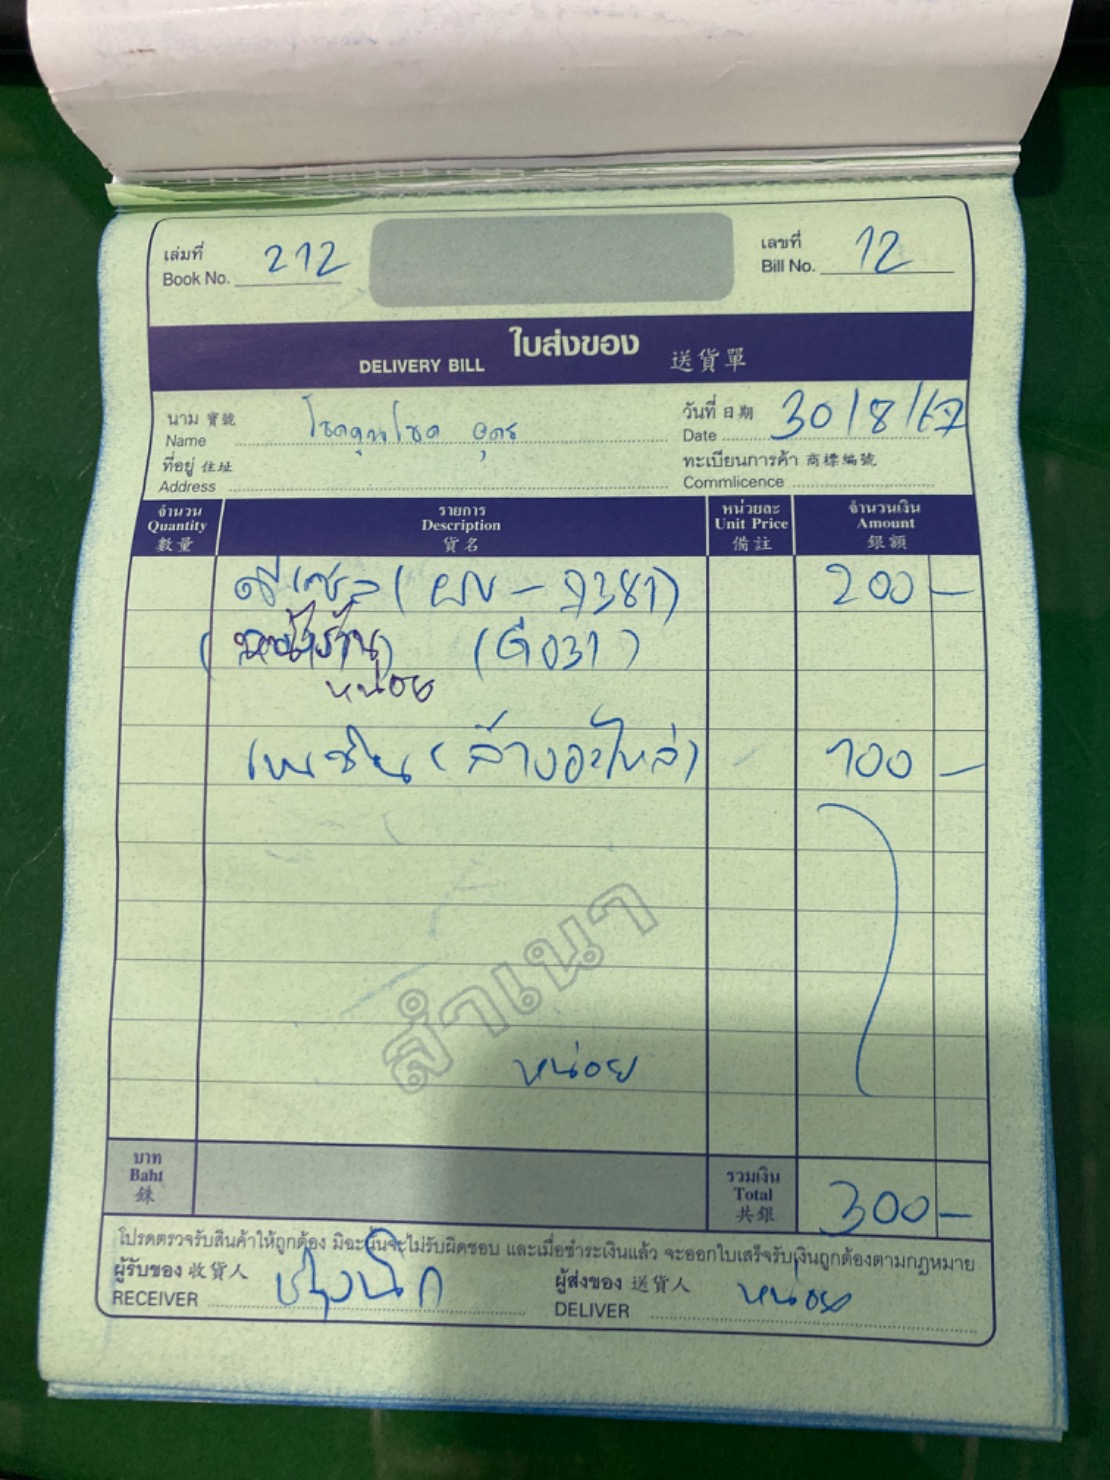 เล่มที่ 212 เลขที่ 12
Book No. Bill No.
ใบส่งของ
DELIVERY BILL 送貨單
นาม 寶號 โชคคูนโชค อุดร วันที่ 日期 30/8/67
Name Date
ที่อยู่ 住址 ทะเบียนการค้า 商標編號
Address Commlicence
จำนวน รายการ หน่วยละ จำนวนเงิน
Quantity Description Unit Price Amount
數量 貨名 備註 銀額
ดีเซล ( 9381) 200 -
(หน้าร้าน) (G031)
หน่อย
เบนซิน (ล้างอะไหล่) 100 -
สำเนา
หน่อย
บาท รวมเงิน
Baht Total 300 -
銖 共銀
โปรดตรวจรับสินค้าให้ถูกต้อง มิฉะนั้นจะไม่รับผิดชอบ และเมื่อชำระเงินแล้ว จะออกใบเสร็จรับเงินถูกต้องตามกฎหมาย
ผู้รับของ 收貨人 ผู้ส่งของ 送貨人 หน่อย
RECEIVER DELIVER